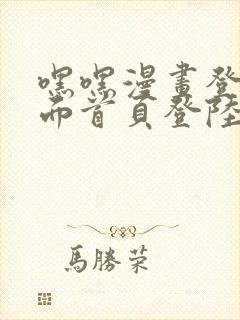 嘿嘿漫畫登
面首頁登陸
馬勝荣